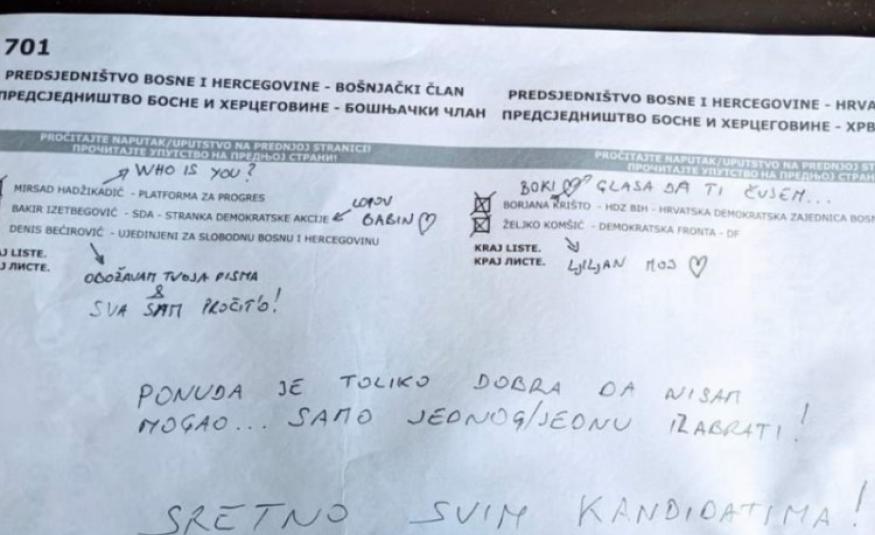 701
PREDSJEDNIŠTVO BOSNE I HERCEGOVINE - BOŠNJAČKI ČLAN
ПРЕДСЈЕДНИШТВО БОСНЕ И ХЕРЦЕГОВИНЕ - БОШЊАЧКИ ЧЛАН
PROČITAJTE NAPUTAK/UPUTSTVO NA PREDNJOJ STRANICI!
ПРОЧИТАЈТЕ УПУТСТВО НА ПРЕДЊОЈ СТРАНИ!
WHO IS YOU?
MIRSAD HADŽIKADIĆ - PLATFORMA ZA PROGRES
BAKIR IZETBEGOVIĆ - SDA - STRANKA DEMOKRATSKE AKCIJE
LOPOV
BABIN
DENIS BEĆIROVIĆ - UJEDINJENI ZA SLOBODNU BOSNU I HERCEGOVINU
AJ LISTE.
Ј ЛИСТЕ.
OBOŽAVAM TVOJA PISMA
&
SVA SAM PROČIT'O!
PREDSJEDNIŠTVO BOSNE I HERCEGOVINE - HRVA
ПРЕДСЈЕДНИШТВО БОСНЕ И ХЕРЦЕГОВИНЕ - ХРВ
PROČITAJTE NAPUTAK/UPUTSTVO NA PREDNJOJ ST
ПРОЧИТАЈТЕ УПУТСТВО НА ПРЕДЊОЈ СТРАН
BOKI ♡ GLASA DA TI ČUJEM...
BORJANA KRIŠTO - HDZ BIH - HRVATSKA DEMOKRATSKA ZAJEDNICA BOSN
ŽELJKO KOMŠIĆ - DEMOKRATSKA FRONTA - DF
KRAJ LISTE.
КРАЈ ЛИСТЕ.
LJILJAN MOJ ♡
PONUDA JE TOLIKO DOBRA DA NISAM
MOGAO... SAMO JEDNOG/JEDNU IZABRATI!
SRETNO SVIM KANDIDATIMA!